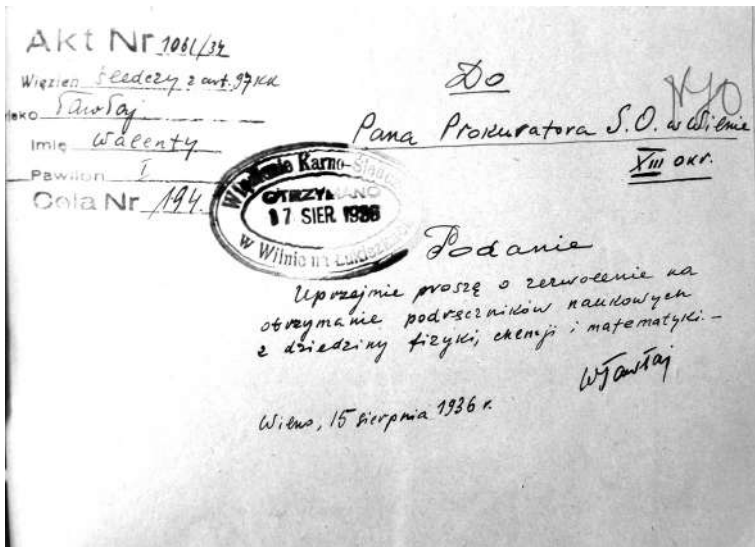 Akt Nr 1061/34
Więzień śledczy z art. 97 KK
Tawłaj
Imię Walenty
Pawilon I
Cela Nr 194.
Do
Pana Prokuratora S.O. w Wilnie
XIII okr.
Więzienie Karno-Śledcze
OTRZYMANO
17 SIER 1936
w Wilnie na Łukiszkach
Podanie
Uprzejmie proszę o zezwolenie na
otrzymanie podręczników naukowych
z dziedziny fizyki, chemji i matematyki.-
WTawłaj
Wilno, 15 sierpnia 1936 r.